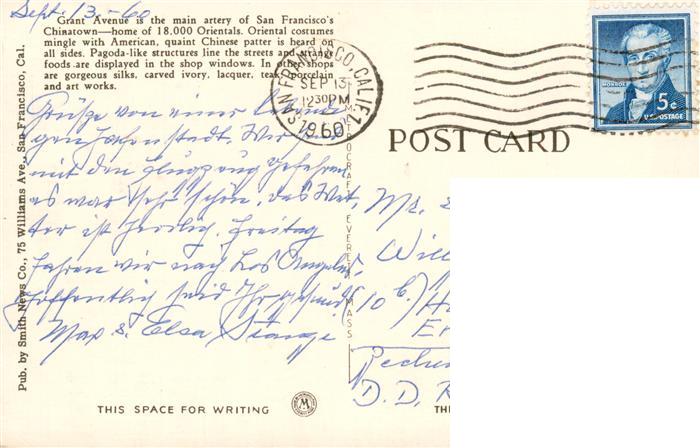 Sept. 13.-60
Grant Avenue is the main artery of San Francisco's
Chinatown—home of 18,000 Orientals. Oriental costumes
mingle with American, quaint Chinese patter is heard on
all sides. Pagoda-like structures line the streets and strange
foods are displayed in the shop windows. In other shops
are gorgeous silks, carved ivory, lacquer, teak, porcelain
and art works.
Pub. by Smith News Co., 75 Williams Ave., San Francisco, Cal.
SAN FRANCISCO, CALIF. 1
SEP 13
12 30 PM
1960
MONROE
5¢
U.S. POSTAGE
POST CARD
Grüße von einer
Hafenstadt. Wir
mit dem Flugzeug gefahren
es war sehr schön, das Wet-
ter ist herrlich. Freitag
fahren wir nach Los Angeles.
Hoffentlich seid Ihr gesund.
Max &. Elsa Stange
EVERETT MASS
Mr.
Will
10 b/ H
Er
D. D. R
THIS SPACE FOR WRITING
M
TH